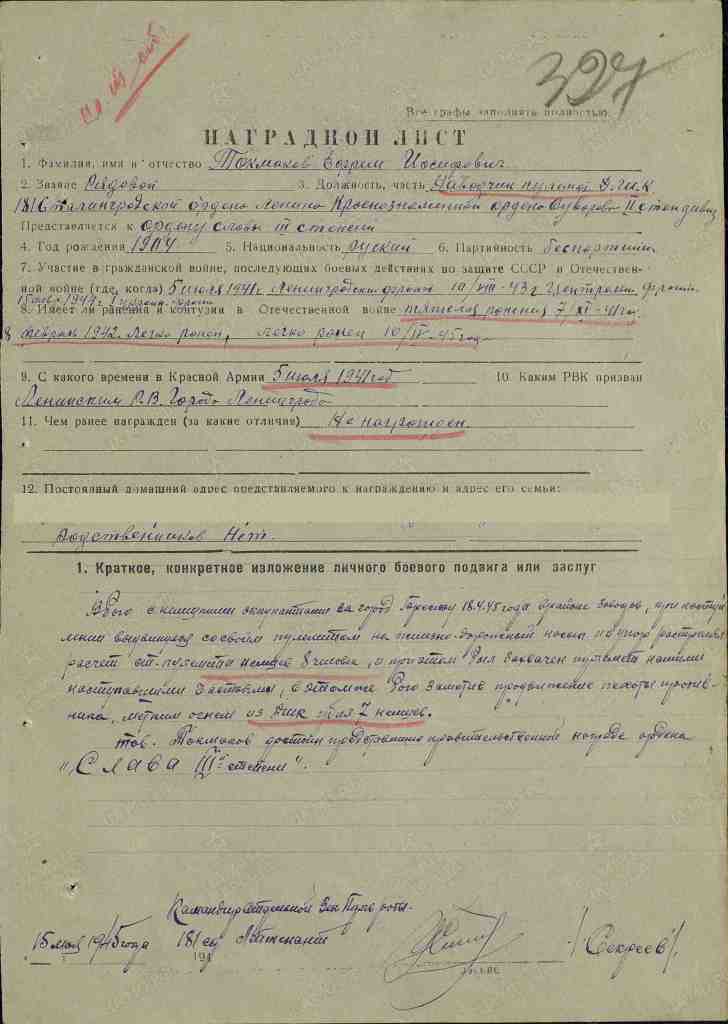 327
Все графы заполнять полностью.
НАГРАДНОЙ ЛИСТ
1. Фамилия, имя и отчество Токмаков Ефрем Иосифович
2. Звание Рядовой 3. Должность, часть Наводчик пульной
181 Сталинградской ордена Ленина Краснознаменной ордена Суворова II степ дивиз
Представляется к ордену Славы III степени
4. Год рождения 1904 5. Национальность руский 6. Партийность беспартийн
7. Участие в гражданской войне, последующих боевых действиях по защите СССР и Отечествен-
ной войне (где, когда) 5 июля 1941г. Ленинградский фронт 10/VIII-43г Централ. фронт
8. Имеет ли ранения и контузии в Отечественной войне тяжелая ранения 7/XI-41 год.
8 февраль 1942. легко ранен, легко ранен 10/IV-45 года
9. С какого времени в Красной Армии 5 июля 1941 год 10. Каким РВК призван
Ленинским Р.В. Города Ленинграда
11. Чем ранее награжден (за какие отличия) Не награжден
12. Постоянный домашний адрес представляемого к награждению и адрес его семьи:
Родственников Нет.
1. Краткое, конкретное изложение личного боевого подвига или заслуг
В бою с немецкими окупантами за город 18.4.45 года в районе заводов, при
со своим пулеметом на железно дорожной насыпи в упор растрелял
расчет от пулемета немцев 8 человек, и при этом был захвачен пулемет нашими
наступавшими, в этом же бою заметив продвижение пехоты против-
ника, метким огнем из убил 7 немцев.
тов. Токмаков достоин представления правительственной награде ордена
"Слава III степени".
Командир пуль роты
15 мая 1945 года 181 сд Лейтенант /Секреев/
194